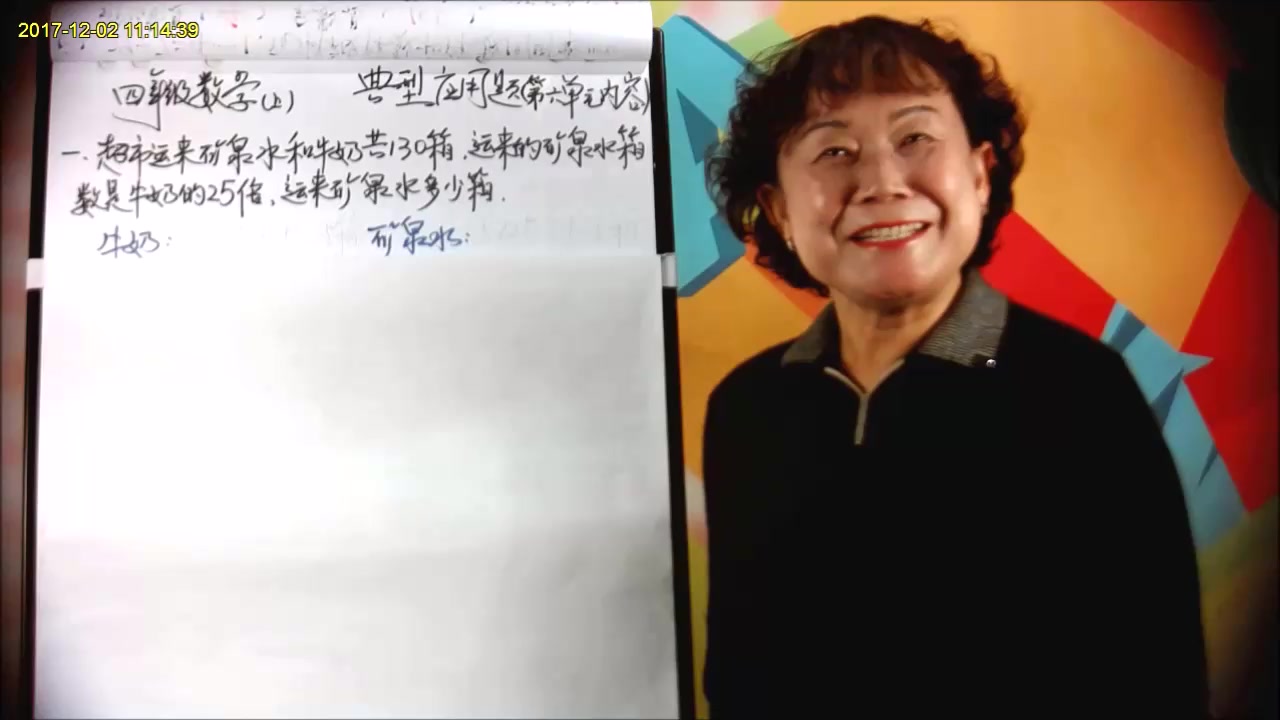 2017-12-02 11:14:39
四年级数学(上) 典型应用题(第六单元内容)
一. 超市运来矿泉水和牛奶共130箱,运来的矿泉水箱
数是牛奶的25倍,运来矿泉水多少箱.
牛奶: 矿泉水: